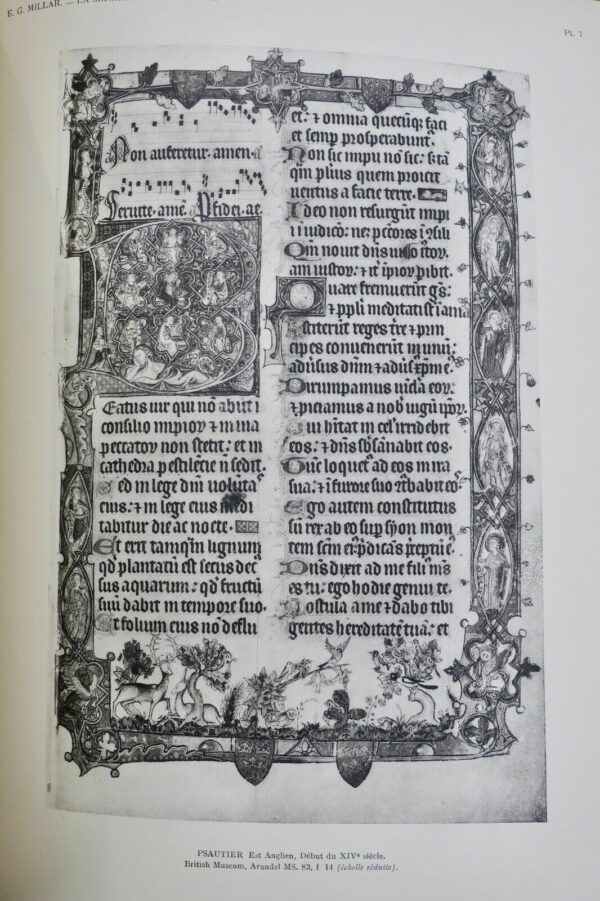 E. G. MILLAR. —
Pl. 7
Non auferetur. amen. a
Servite. amē. P fidei. ae.
Eatus uir qui nō abiit ī
consilio impioꝝ ⁊ in uia
peccatoꝝ non stetit: et in
cathedra pestilēcie ñ sedit.
Sed in lege dnī uoluntas
eius: ⁊ in lege eius medi
tabitur die ac nocte.
Et erit tamqᷓm lignum
qd̄ plantatū est secus decur
sus aquarum: qd̄ fructū
suū dabit in tempore suo.
Et folium eius nō deflu
et: ⁊ omnia quecūqꝫ faci
et semp prosperabunt.
Non sic impii nō sic: s; tā
qᷓm puluis quem proicit
uentus a facie terre.
Ideo non resurgūt impii
in iudicō: neqꝫ pctores ī ꝯsili
Qm̄ nouit dn̄s uiā iustoꝝ.
am iustoꝝ: ⁊ iť ipioꝝ pibit.
Quare fremuerūt gēs:
⁊ ppli meditati st̄ īania
Astiterūt reges tr̄e ⁊ prin
cipes conuenerūt in unū:
adūsus dn̄m ⁊ adūsꝰ xp̄m eꝰ.
Dirumpamus uīcla eoꝝ:
⁊ piciamus a nob̄ iugū ipōꝝ.
Qui hītat in cel̄ irridebit
eos: ⁊ dn̄s sb̄sānabit eos.
Tūc loquet̉ ad eos in ira
sua: ⁊ ī furore suo ꝯt̉babit eo
Ego autem constitutus
sū rex ab eo sup syon mon
tem scm̄ eꝰ: p̄dicās p̄ceptū eꝰ.
Dn̄s dixit ad me filiꝰ mꝰs
es tu: ego hodie genui te.
Postula a me ⁊ dabo tibi
gentes hereditatē tuā: et
PSAUTIER Est Anglien, Début du XIVᵉ siècle.
British Museum, Arundel MS. 83, f 14 (échelle réduite).